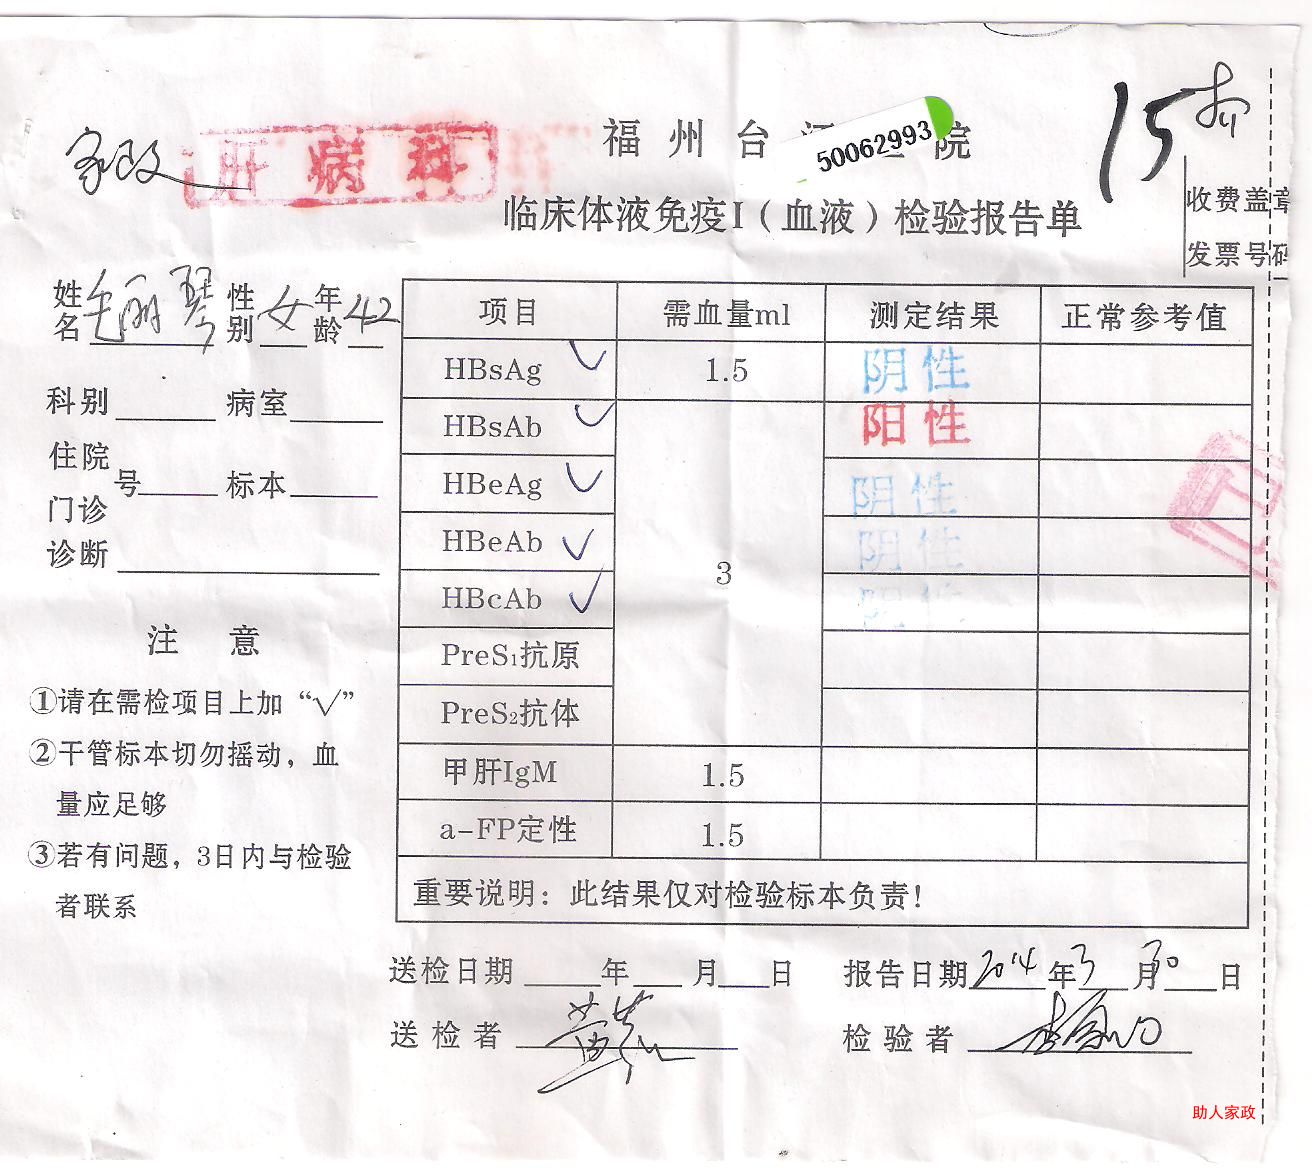 15
家政
肝病科
福州台江 院
50062993
临床体液免疫I（血液）检验报告单
收费盖章
发票号码
姓名 毛丽琴 性别 女 年龄 42
科别 病室
住院
门诊 号 标本
诊断
注 意
①请在需检项目上加“√”
②干管标本切勿摇动，血
量应足够
③若有问题，3日内与检验
者联系
项目 需血量ml 测定结果 正常参考值
HBsAg √ 1.5 阴性
HBsAb √ 阳性
HBeAg √ 阴性
HBeAb √ 阴性
3
HBcAb √ 阴性
PreS₁抗原
PreS₂抗体
甲肝IgM 1.5
a-FP定性 1.5
重要说明：此结果仅对检验标本负责！
送检日期 年 月 日 报告日期 2014 年 3 月 30 日
送检者 检验者
助人家政